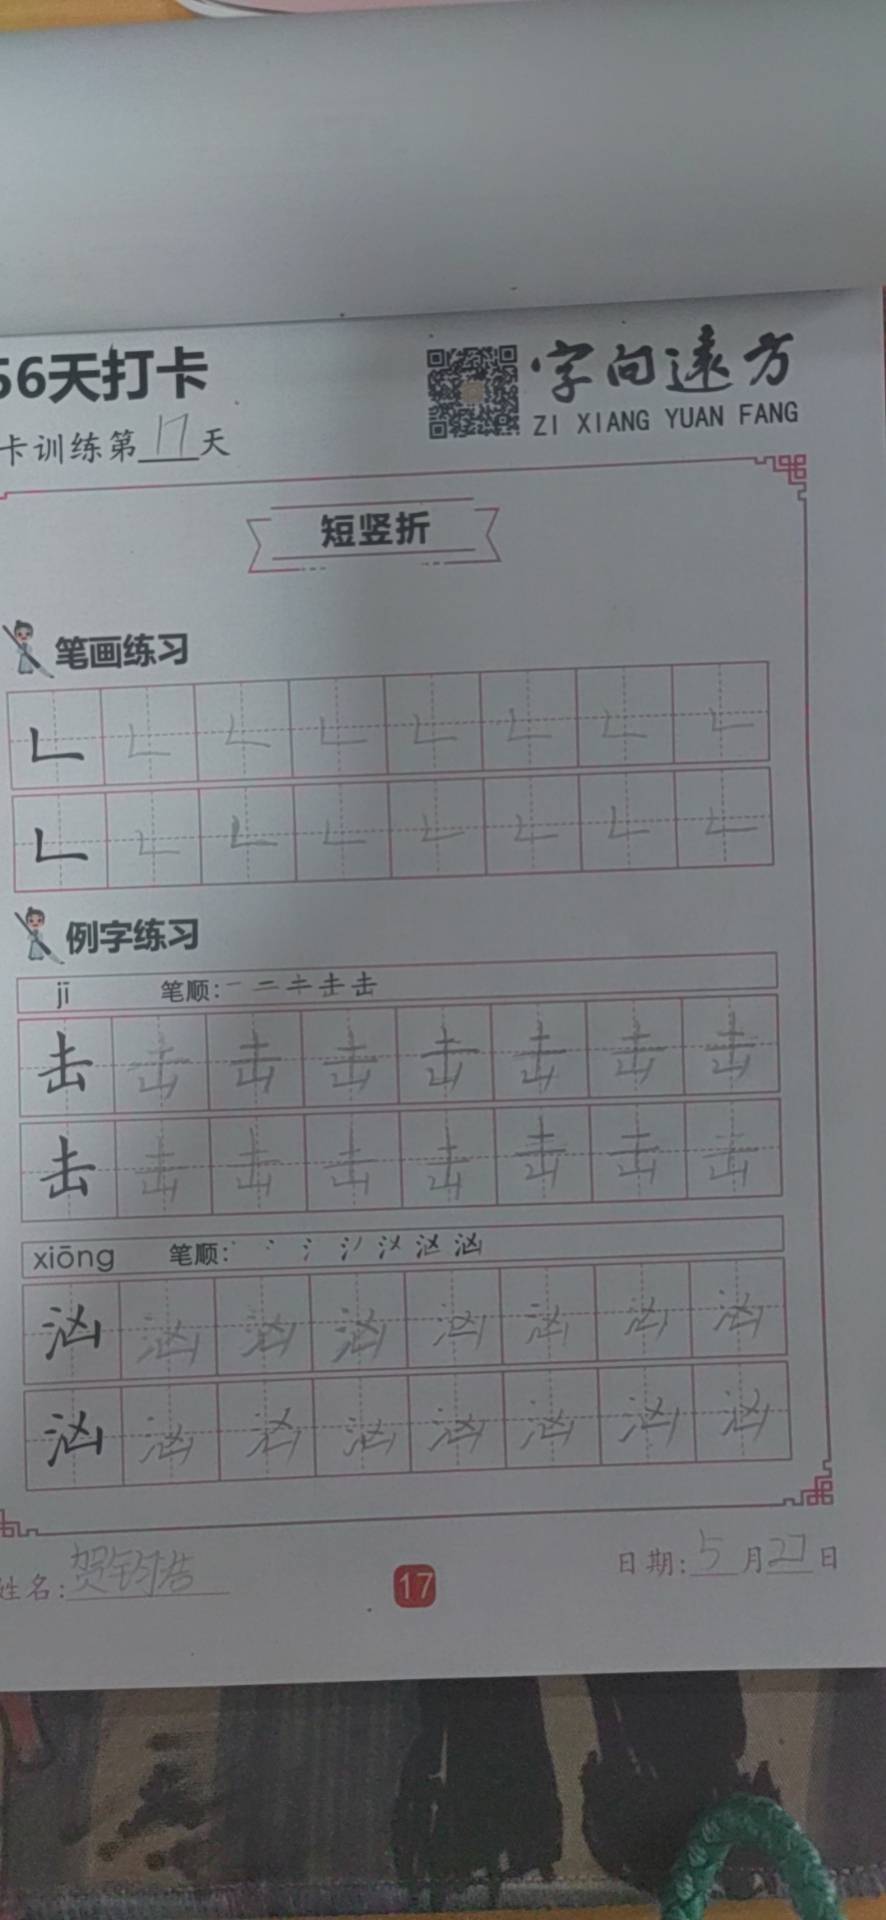 56天打卡
字向远方
ZI XIANG YUAN FANG
卡训练第17天
短竖折
笔画练习
𠃊 𠃊 𠃊 𠃊 𠃊 𠃊 𠃊 𠃊
𠃊 𠃊 𠃊 𠃊 𠃊 𠃊 𠃊 𠃊
例字练习
jī 笔顺:
击 击 击 击 击 击 击 击
击 击 击 击 击 击 击 击
xiōng 笔顺:
汹 汹 汹 汹 汹 汹 汹 汹
汹 汹 汹 汹 汹 汹 汹 汹
姓名:贺钧浩
17
日期:5月27日